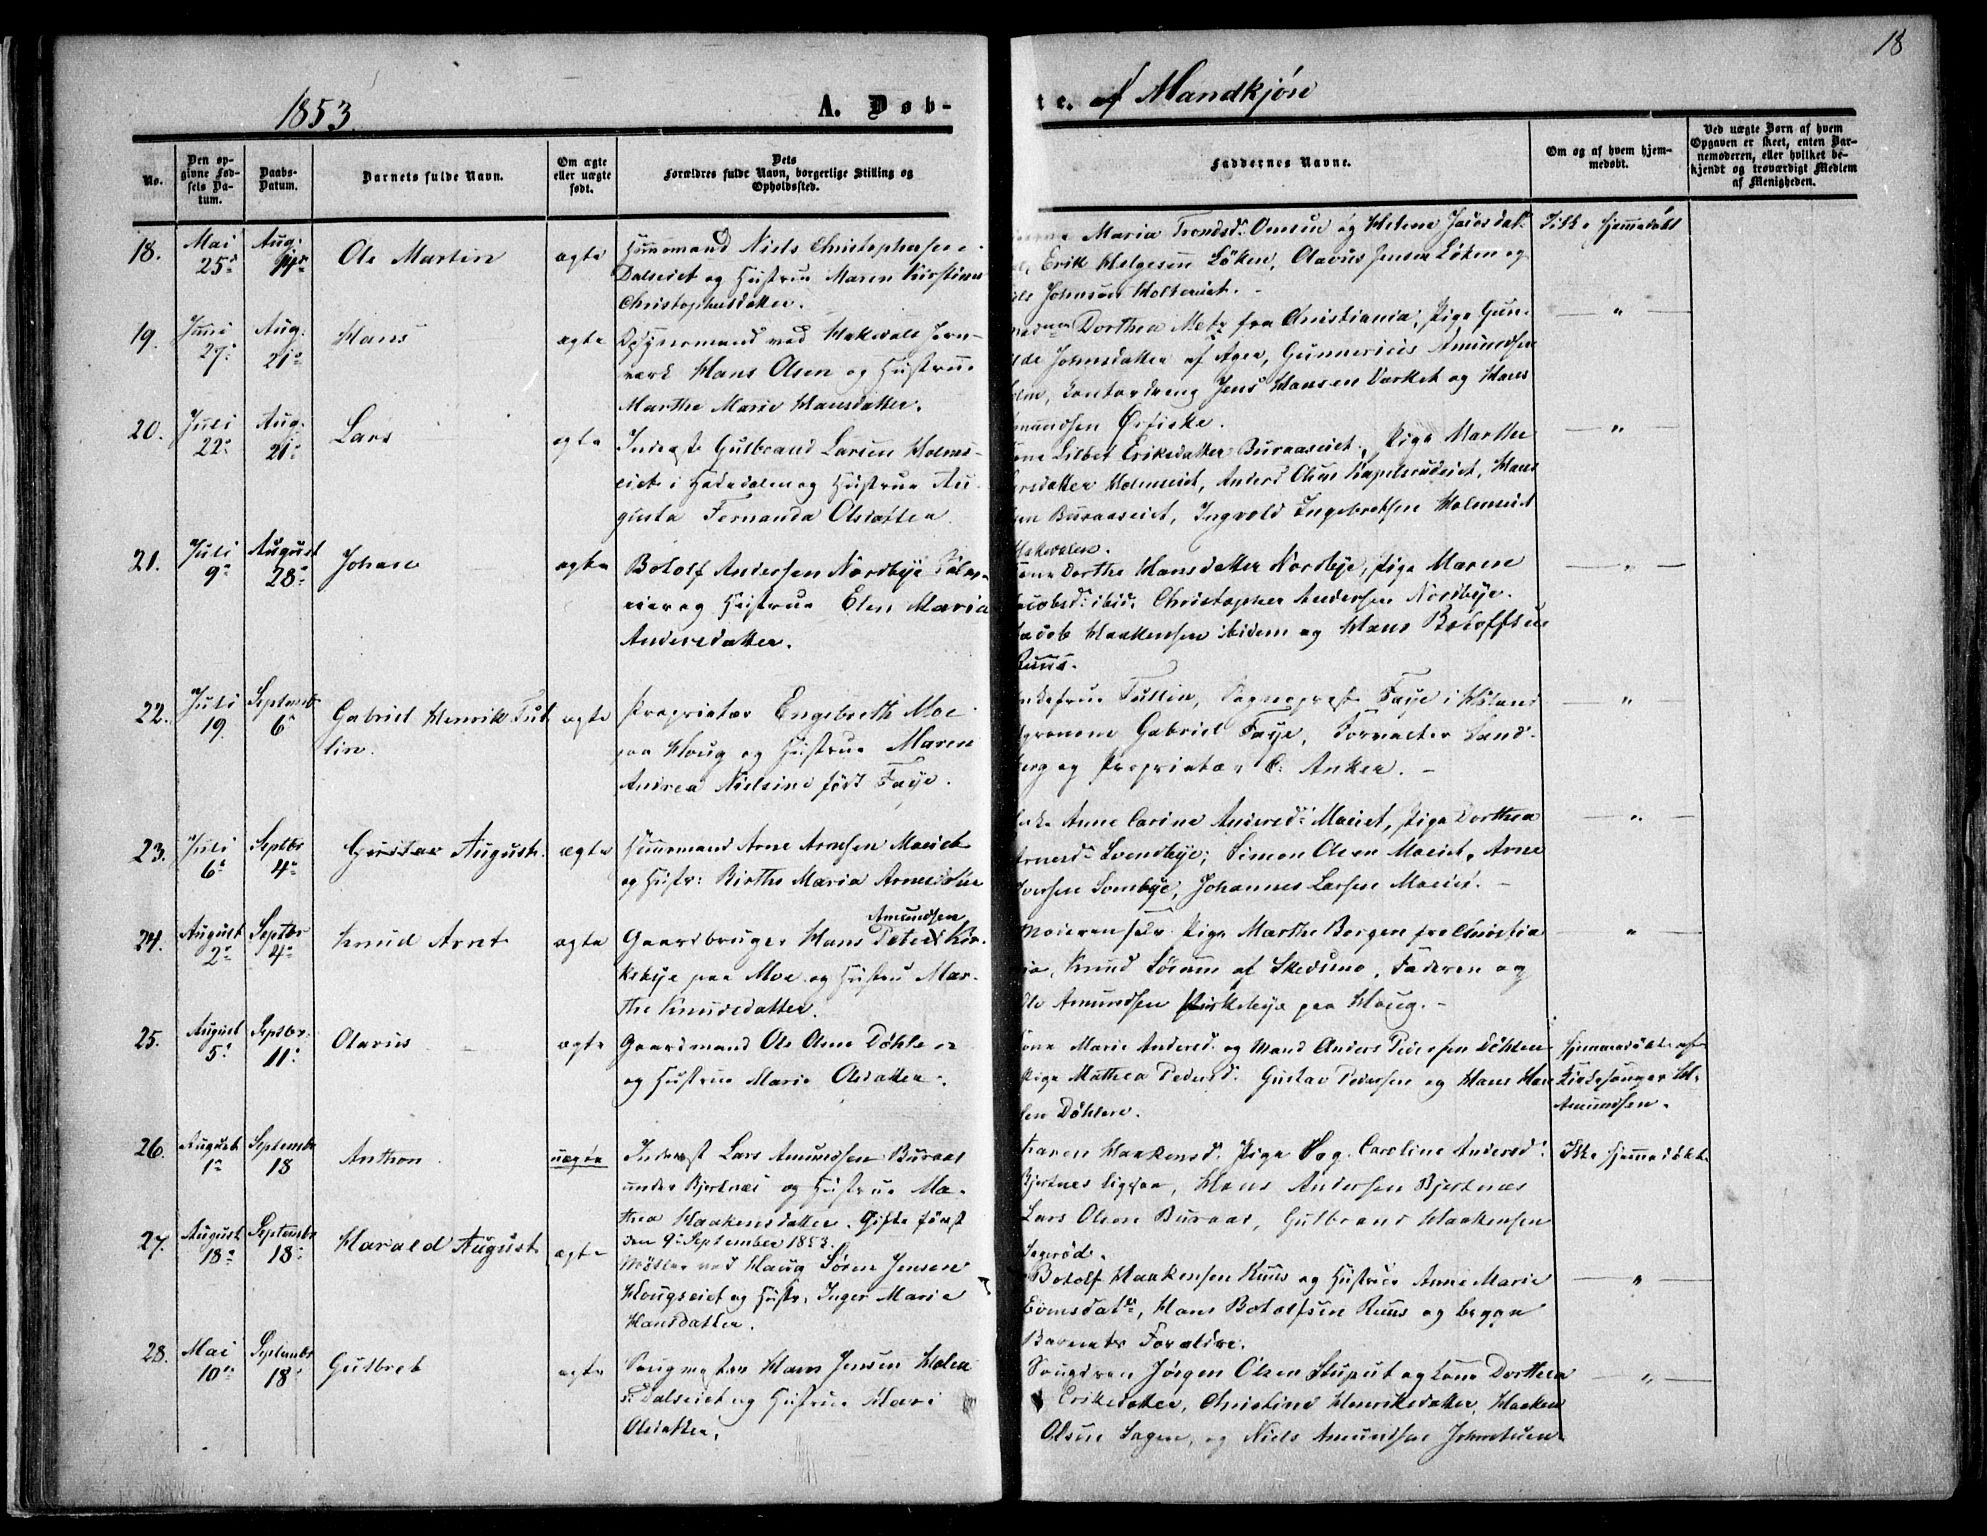 18
1853.
A. Døb-
te. af Mandkjön
No.
Den op-
givne Fød-
sels Da-
tum.
Daabs-
Datum.
Barnets fulde Navn.
Om ægte
eller uægte
født.
Dets
Forældres fulde Navn, borgerlige Stilling og
Opholdssted.
Faddernes Navne.
Om og af hvem hjem-
medøbt.
Ved uægte Børn af hvem
Opgaven er skeet, enten Bar-
nemoderen, eller hvilket be-
kjendt og troværdigt Medlem
af Menigheden.
18. Mai Aug.
25
Ole Martin
ægte
Huusmand Niels Christophersen
Dalseiet og Hustrue Maren Kirstine
Christophersdatter.
Maria Trondsd. og Helene
Erik Helgesen Löken, Olavus Jensen Löken og
Johnsen Holtereiet. -
Ikke hjemmedöbt
19. Juni Aug.
27 21
Hans
ægte
ved Hakedals Jern-
værk Hans Olsen og Hustrue
Marthe Marie Hansdatter.
Dorthea Metz fra Christiania, Pige Gun-
Johnsdatter af Ager, Gunnerius Amundsen
Contordreng Jens Hansen Værket og Hans
Ørfiske.
— " —
20. Juli Aug.
22 21
Lars
ægte
Inderst Gulbrand Larsen Holms-
eiet i Hakedalen og Hustrue Au-
gusta Fernanda Olsdatter
Lisbet Eriksdatter Buraaseiet, Pige Marthe
Holmseiet, Anders Olsen Kapelsrudeiet, Hans
Buraaseiet, Ingvold Ingebretsen Holmseiet
Hakedalen.
— " —
21. Juli August
9 28
Johan
ægte
Botolf Andersen Nordbye
og Hustrue Elen Maria
Andersdatter.
Kone Dorthe Hansdatter Nordbye, Pige Maren
Jacobsd. ibid. Christopher Andersen Nordbye.
Jacob Haakensen ibidem og Hans Botolfsen
Ruus.
— " —
22. Juli Septemb
19. 6
Gabriel Henrik Tul
lin.
ægte
Proprietær Engebreth Moe
paa Houg og Hustrue Maren
Andrea Nielsine född Faye.
Enkefrue Tullin, Sogneprest Faye i Höland
Gabriel Faye, Forvalter Sand-
berg og Proprietær C. Anker. -
"
23. Juli Septbr
6 4
Gustav August.
ægte
Huusmand Arne Arnesen Moeiet
og Hustr: Birthe Maria Arnesdatter
Anne Carine Andersd. Moeiet, Pige Dorthea
Arnesd. Svendbye; Simon Olsen Moeiet, Arne
Iversen Sombye, Johannes Larsen Moeiet. -
"
24. August Septbr
2 4
Knud Arnt
ægte
Amundsen
Gaardbruger Hans Peter Kir-
kebye paa Moe og Hustru Mar-
the Knudsdatter.
Moderen selv. Pige Marthe Borgen fra Christia
nia, Knud Sörum af Skedsmo, Faderen og
Ole Amundsen Kirkebye paa Houg. -
"
25. August Septbr.
5 11
Olavus
ægte
Gaardmand Ole Olsen Döhlen
og Hustrue Marie Olsdatter.
Kone Marie Andersd. og Mand Anders Pedersen Döhlen
Pige Mathea Pedersd. Gustav Pedersen og Hans Han
sen Döhlen.
Hjemmedöbt af
Kirkesanger H.
Amundsen.
26. August Septembr
1 18
Anthon
uægte
Inderst Lars Amundsen Buraas
under Bjertnæs og Hustrue Ma-
thea Haakensdatter. Gifte först
den 9 September 1853.
Karen Haakensd. Pige Caroline Andersd.
Bjertnes ligesaa, Hans Andersen Bjertnæs
Lars Olsen Buraas, Gulbrand Haakensen
Ikke hjemmedöbt
27. August Septembr
18 18
Harald August
ægte
Möller ved Haug Sören Jensen
Hougseiet og Hustr. Inger Marie
Hansdatter.
Botolf Haakensen Ruus og Hustrue Anne Marie
Hans Botolfsen Ruus og begge
Barnets Forældre.
— " —
28. Mai Septembr
10 18
Gulbret
ægte
Hans Jensen Holen
Dalseiet og Hustrue Mari
Olsdatter.
Jörgen Olsen Stuput og Kone Dorthea
Eriksdatter, Christine Henriksdatter, Haaken
Olsen Sagen, og Niels Amundsen
— " —